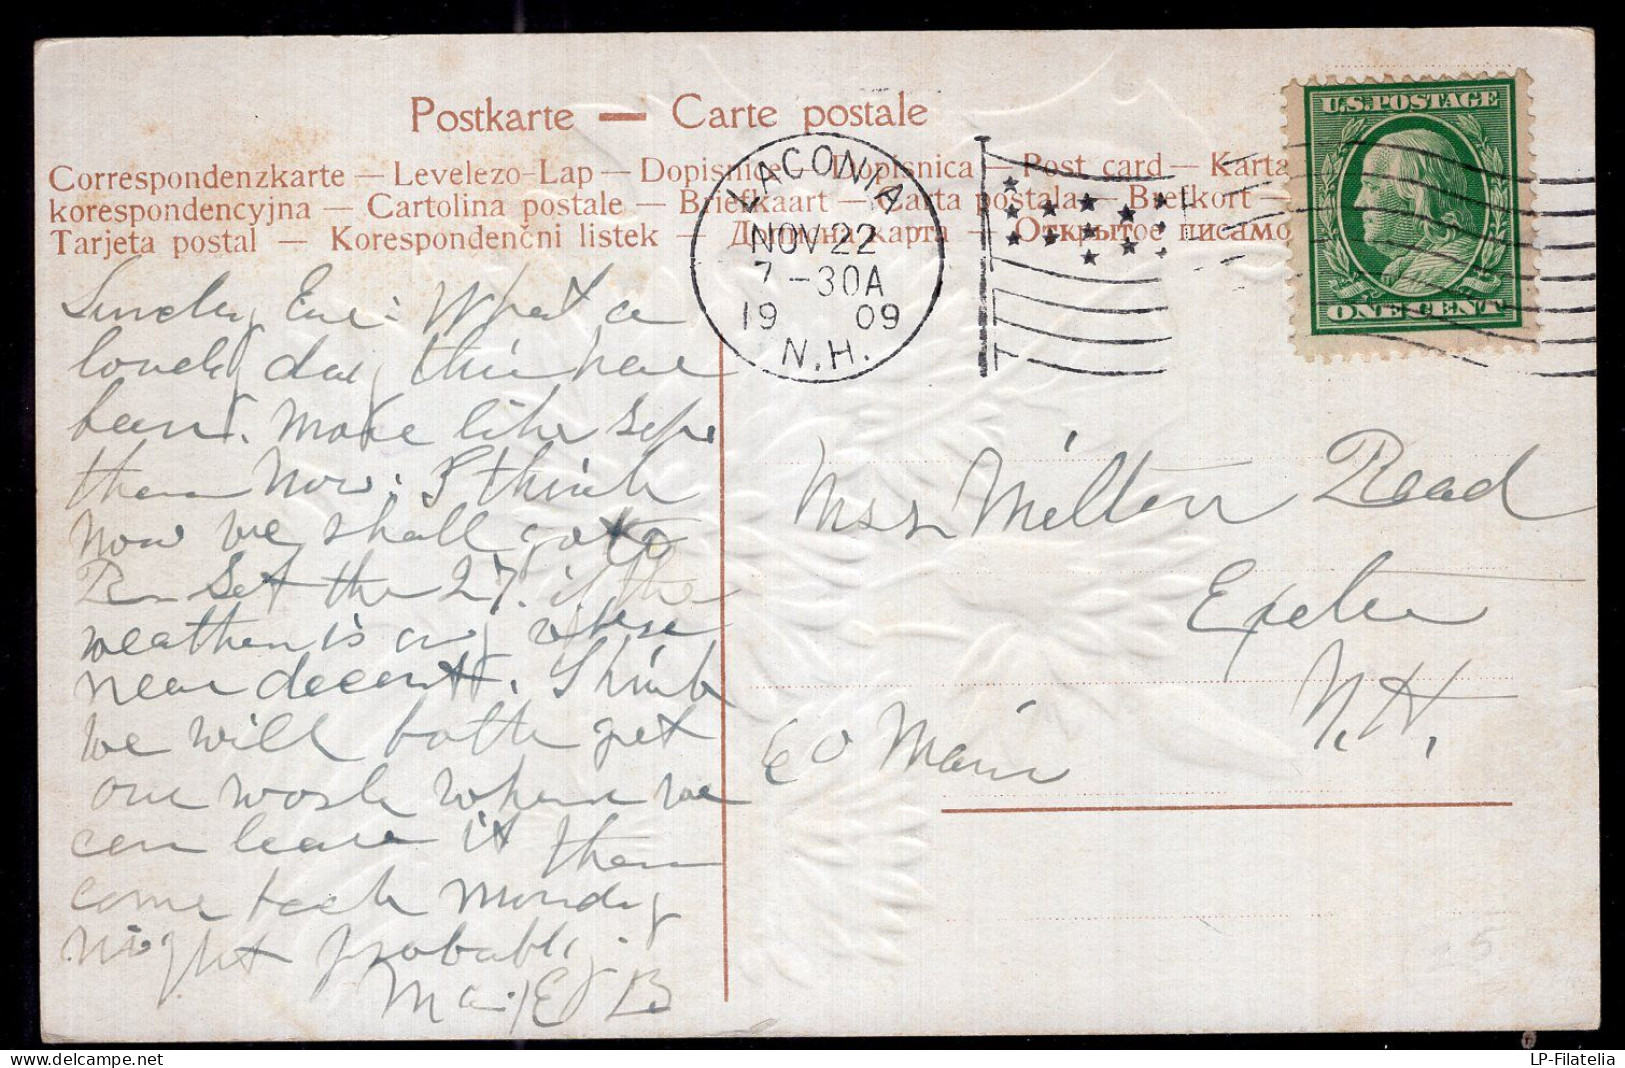 Postkarte — Carte postale
Correspondenzkarte — Levelezo-Lap — Dopisnice — Dopisnica — Post card — Karta
korespondencyjna — Cartolina postale — Briefkaart — Carta postala — Brefkort —
Tarjeta postal — Korespondenčni listek — Дописна карта — Открытое писамо
U.S. POSTAGE
ONE CENT
LACONIA
NOV 22
7-30A
19 09
N.H.
Sunday Eve: What a
lovely day this has
been. More like
than Nov; I think
now we shall go to
Set the 27. if the
weather is any where
near decent. Think
we will both get
our work where we
can leave it then
come back Monday
night probably.
B
Milton Read
Exeter
N.H.
LP-Filatelia